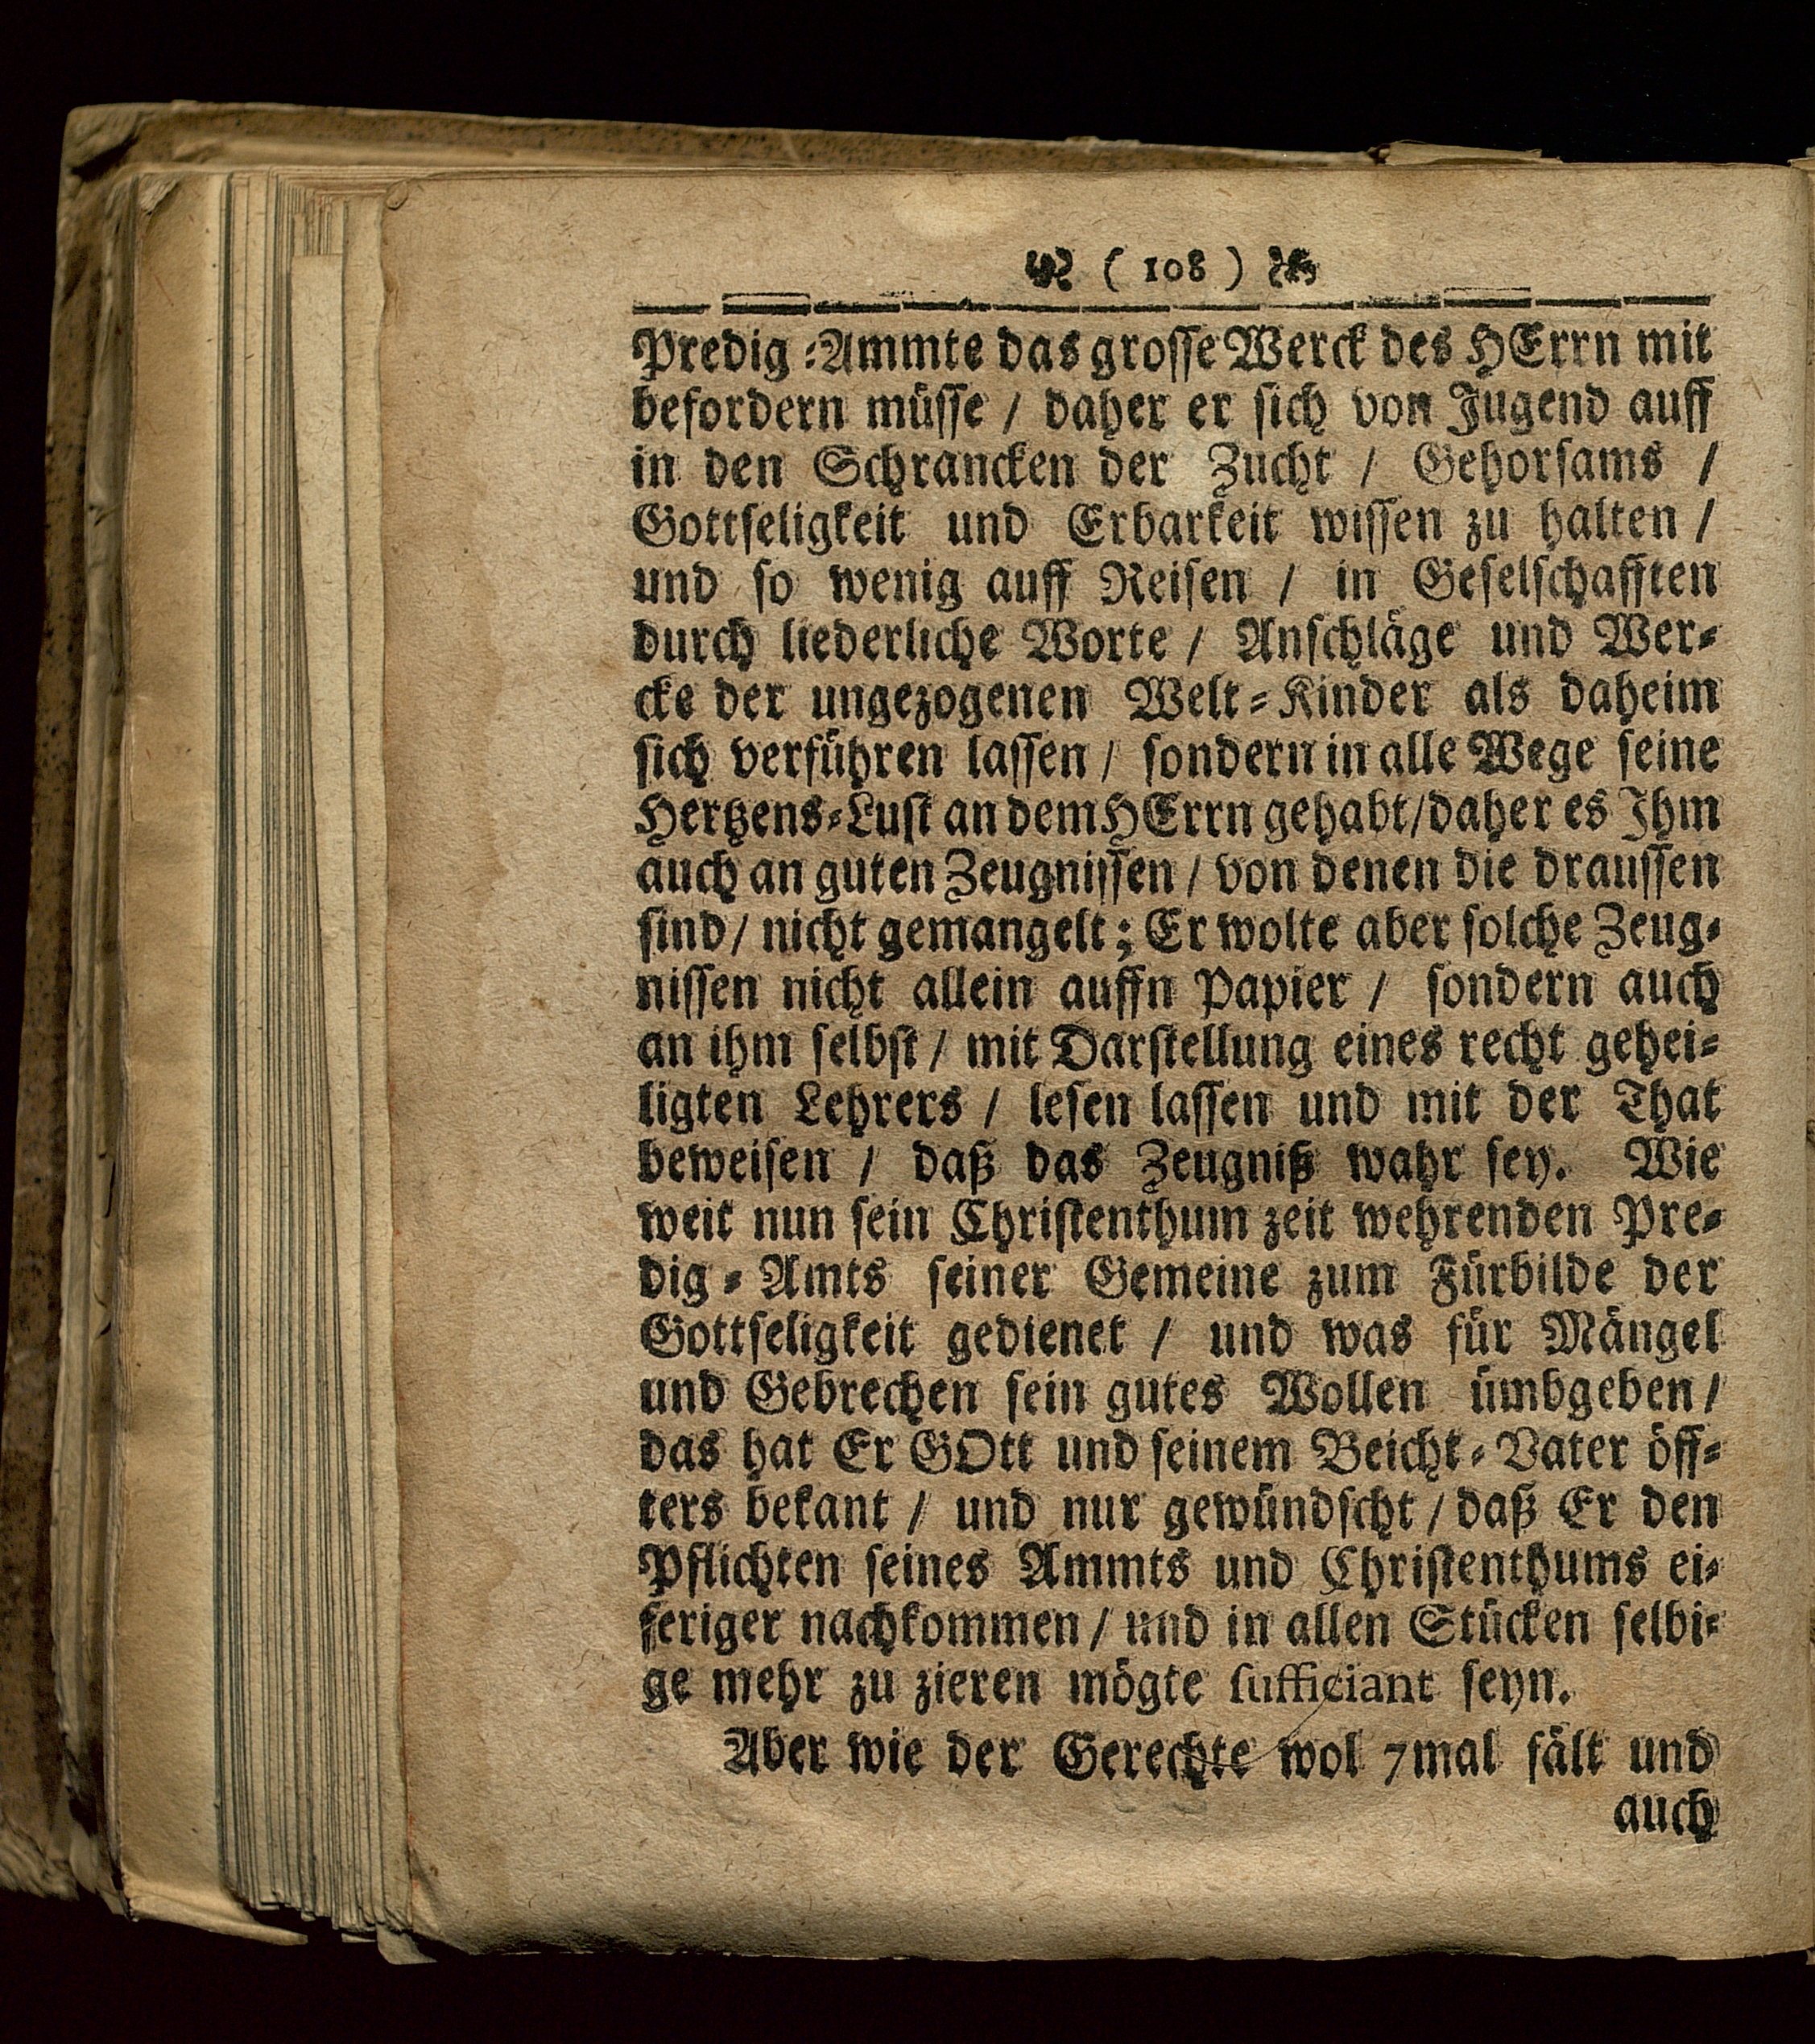 ( 108 )
Predig-Ammte das grosse Werck des HErrn mit
befordern müsse / daher er sich von Jugend auff
in den Schrancken der Zucht / Gehorsams /
Gottseligkeit und Erbarkeit wissen zu halten /
und so wenig auff Reisen / in Geselschafften
durch liederliche Worte / Anschläge und Wer-
cke der ungezogenen Welt-Kinder als daheim
sich verführen lassen / sondern in alle Wege seine
Hertzens-Lust an dem HErrn gehabt / daher es Ihm
auch an guten Zeugnissen / von denen die draussen
sind / nicht gemangelt; Er wolte aber solche Zeug-
nissen nicht allein auffn Papier / sondern auch
an ihm selbst / mit Darstellung eines recht gehei-
ligten Lehrers / lesen lassen und mit der That
beweisen / daß das Zeugniß wahr sey. Wie
weit nun sein Christenthum zeit wehrenden Pre-
dig-Amts seiner Gemeine zum Fürbilde der
Gottseligkeit gedienet / und was für Mängel
und Gebrechen sein gutes Wollen ümbgeben /
das hat Er GOtt und seinem Beicht-Vater öff-
ters bekant / und nur gewündscht / daß Er den
Pflichten seines Ammts und Christenthums ei-
feriger nachkommen / und in allen Stücken selbi-
ge mehr zu zieren mögte sufficiant seyn.
Aber wie der Gerechte wol 7mal fält und
auch